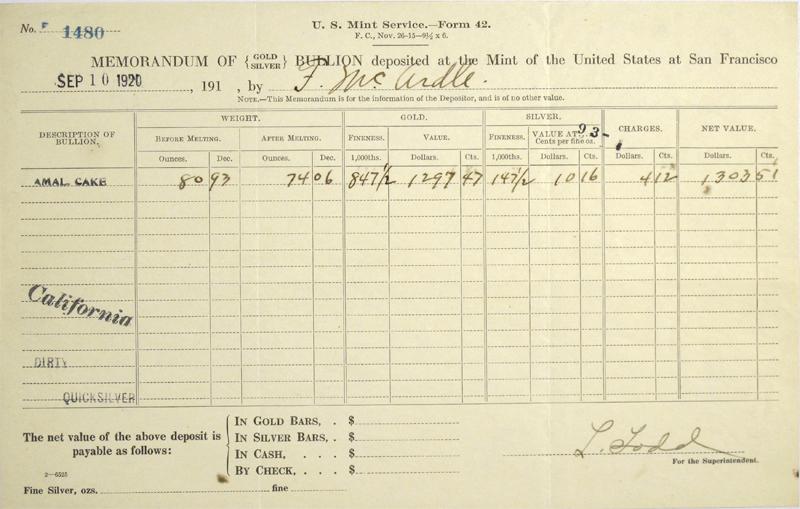 U. S. Mint Service.—Form 42.
No. F 1480
F. C., Nov. 26-15—9½ x 6.
MEMORANDUM OF {GOLD SILVER} BULLION deposited at the Mint of the United States at San Francisco
SEP 10 1920, 191 , by F. McArdle.
NOTE.—This Memorandum is for the information of the Depositor, and is of no other value.
DESCRIPTION OF BULLION. WEIGHT. GOLD. SILVER. CHARGES. NET VALUE.
BEFORE MELTING. AFTER MELTING. FINENESS. VALUE. FINENESS. VALUE AT 93- Cents per fine oz.
Ounces. Dec. Ounces. Dec. 1,000ths. Dollars. Cts. 1,000ths. Dollars. Cts. Dollars. Cts. Dollars. Cts.
AMAL. CAKE 80 93 74 06 847½ 1297 47 147½ 10 16 4 12 1303 51
California
DIRTY
QUICKSILVER
The net value of the above deposit is payable as follows:
IN GOLD BARS, . $
IN SILVER BARS, . $
IN CASH, . . . $
BY CHECK, . . . $
L. Todd
For the Superintendent.
2—6525
Fine Silver, ozs. fine